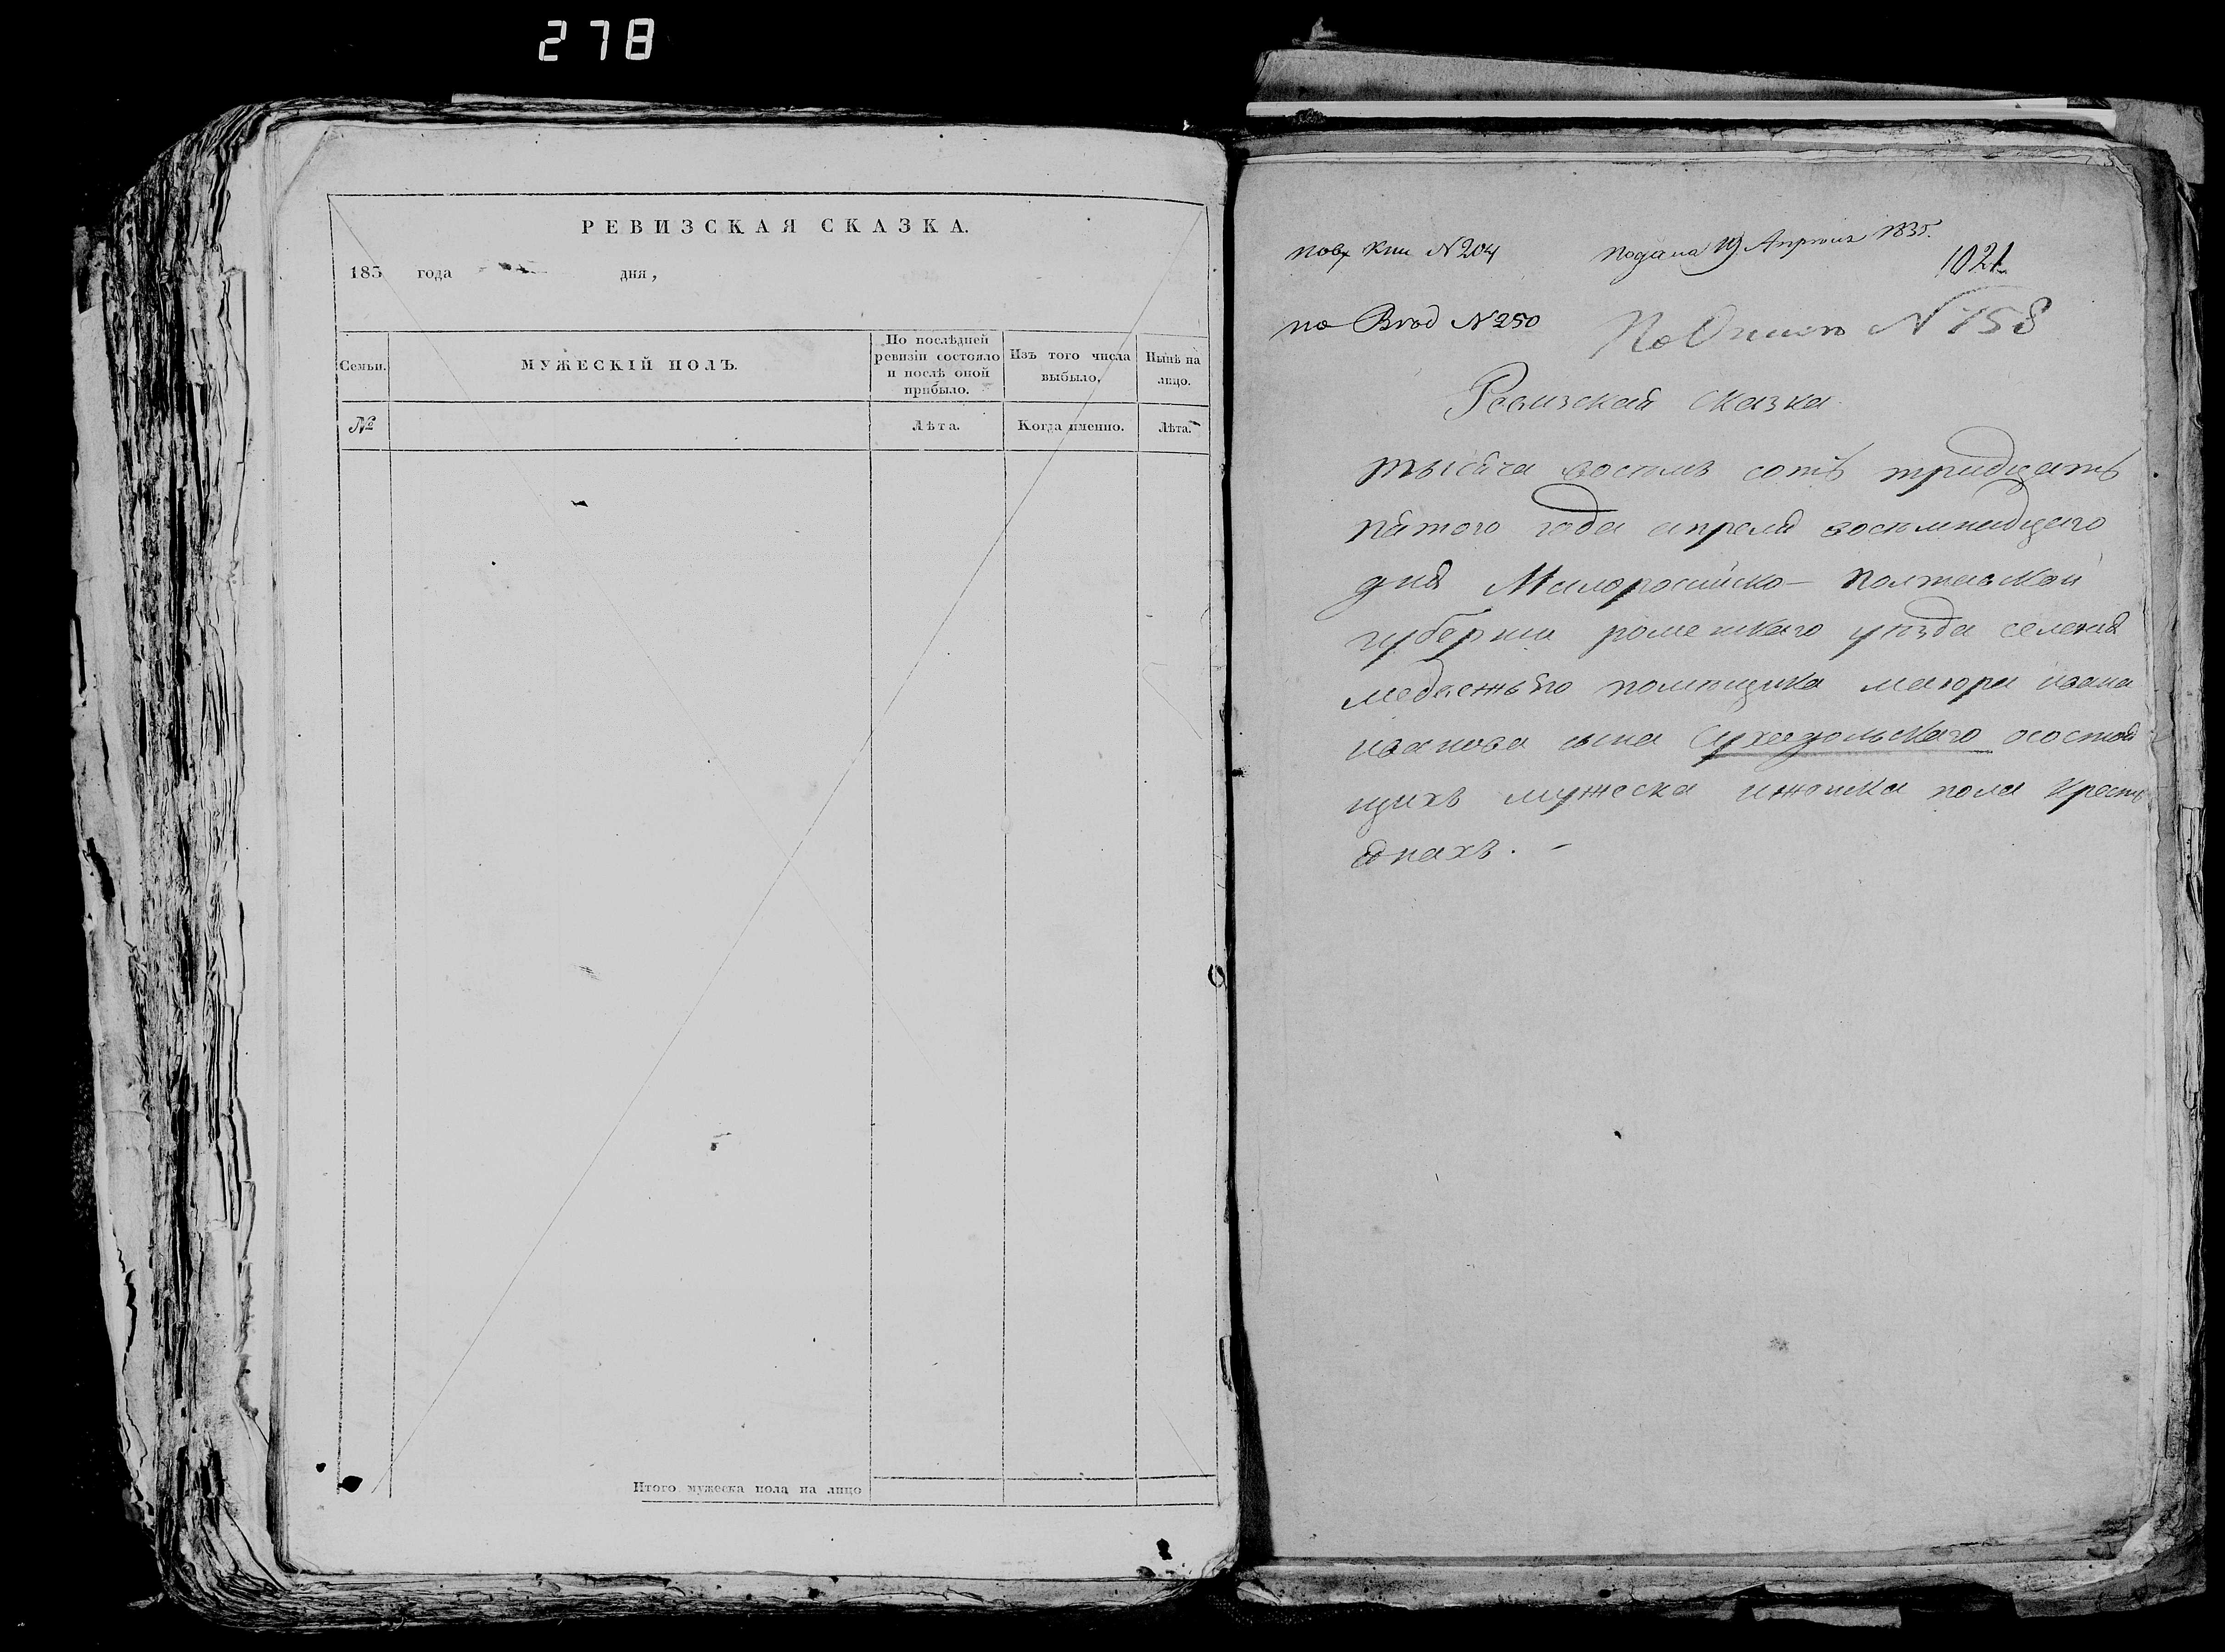 278
РЕВИЗСКАЯ СКАЗКА.
183 года дня,
Семьи.
МУЖЕСКІЙ ПОЛЪ.
По послѣдней
ревизіи состояло
и послѣ оной
прибыло.
Изъ того числа
выбыло,
Нынѣ на
лицо.
№
Лѣта.
Когда именно.
Лѣта.
Итого мужеска пола на лицо
повх кни N 204
подана 19 Апрѣля 1835.
1021
по Вход N 250
По Описи N 158
Ревизская сказка
тысяча восемъ сотъ тридцать
пятого года апреля восемнадцаго
дня Малоросийско- Полтавской
губернии роменскаго уѣзда селения
помещика маиора ивана
иванова сына Суходольскаго осостоя
щихъ мужеска иженска пола кресть
янахъ. -